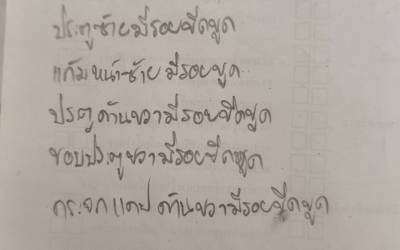 ประตูซ้ายมีรอยขีดขูด
แก้มหน้าซ้ายมีรอยขูด
ประตูด้านขวามีรอยขีดขูด
ขอบประตูขวามีรอยขีดขูด
กระจกแคปด้านขวามีรอยขีดขูด